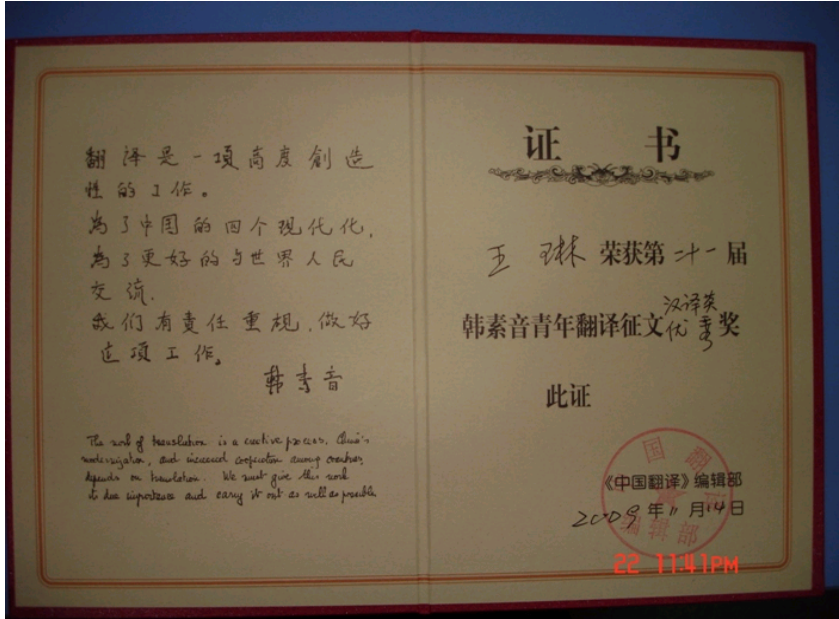 翻译是一項高度創造
性的工作。
為了中国的四个现代化,
為了更好的与世界人民
交流.
我们有責任重視,做好
这项工作。
韩素音
The work of translation is a creative process. China's
modernization, and increased cooperation among countries,
depends on translation. We must give this work
it due importance and carry it out as well as possible.
证 书
王 琳 荣获第二十一届
汉译英
韩素音青年翻译征文优秀奖
此证
《中国翻译》编辑部
2009年11月14日
中国翻译
编辑部
22 11:41PM